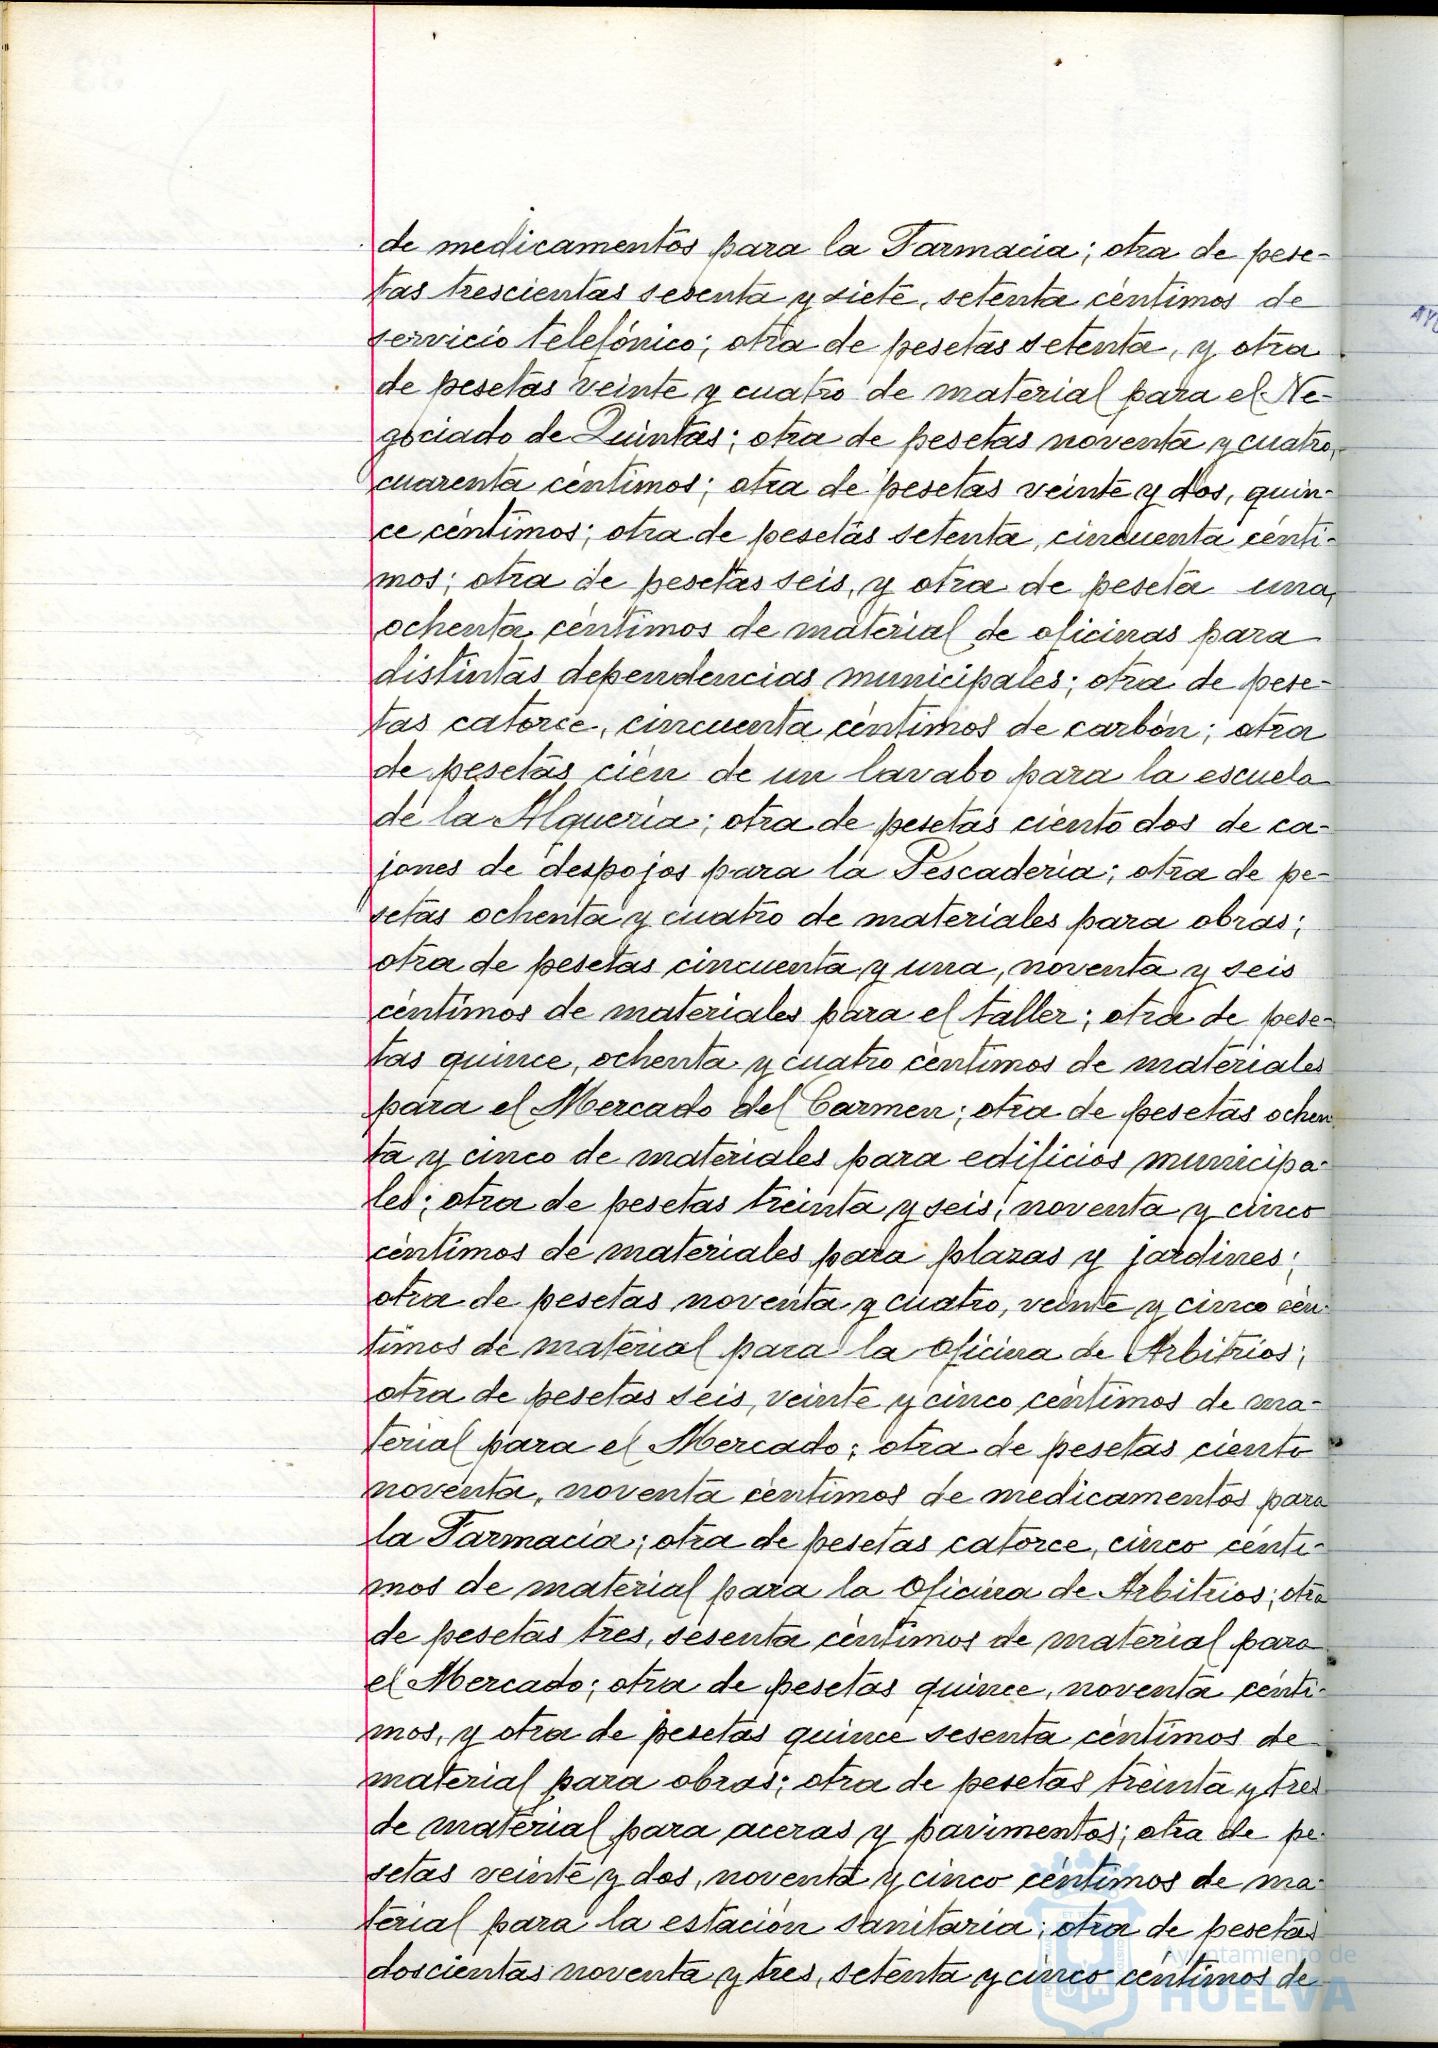 de medicamentos para la Farmacia; otra de pese-
tas trescientas sesenta y siete, setenta céntimos de
servicio telefónico; otra de pesetas setenta, y otra
de pesetas veinte y cuatro de material para el Ne-
gociado de Quintas; otra de pesetas noventa y cuatro,
cuarenta céntimos; otra de pesetas veinte y dos, quin-
ce céntimos; otra de pesetas setenta, cincuenta cénti-
mos; otra de pesetas seis, y otra de peseta una,
ochenta céntimos de material de oficinas para
distintas dependencias municipales; otra de pese-
tas catorce, cincuenta céntimos de carbón; otra
de pesetas cien de un lavabo para la escuela
de la Alquería; otra de pesetas ciento dos de ca-
jones de despojos para la Pescadería; otra de pe-
setas ochenta y cuatro de materiales para obras;
otra de pesetas cincuenta y una, noventa y seis
céntimos de materiales para el taller; otra de pese-
tas quince, ochenta y cuatro céntimos de materiales
para el Mercado del Carmen; otra de pesetas ochen
ta y cinco de materiales para edificios municipa-
les; otra de pesetas treinta y seis, noventa y cinco
céntimos de materiales para plazas y jardines;
otra de pesetas noventa y cuatro, veinte y cinco cén-
timos de material para la Oficina de Arbitrios;
otra de pesetas seis, veinte y cinco céntimos de ma-
terial para el Mercado; otra de pesetas ciento
noventa, noventa céntimos de medicamentos para
la Farmacia; otra de pesetas catorce, cinco cénti-
mos de material para la Oficina de Arbitrios; otra
de pesetas tres, sesenta céntimos de material para
el Mercado; otra de pesetas quince, noventa cénti-
mos, y otra de pesetas quince sesenta céntimos de
material para obras; otra de pesetas treinta y tres
de material para aceras y pavimentos; otra de pe-
setas veinte y dos, noventa y cinco céntimos de ma-
terial para la estación sanitaria; otra de pesetas
doscientas noventa y tres, setenta y cinco centimos de
Ayuntamiento de
HUELVA